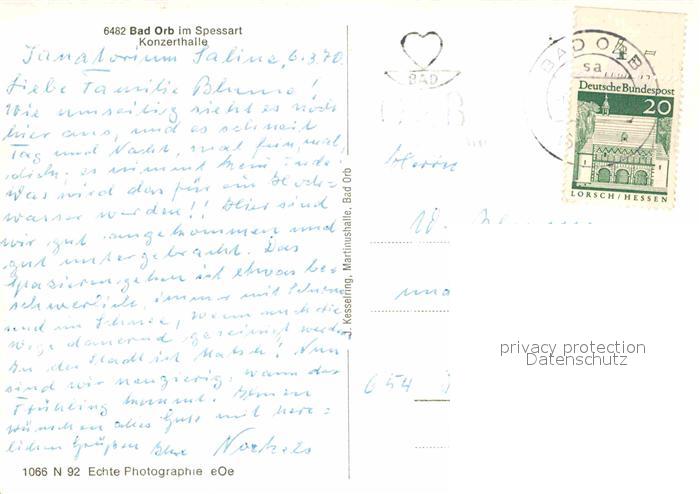 6482 Bad Orb im Spessart
Konzerthalle
Sanatorium Saline, 6.3.70.
Liebe Familie Blume!
Wie umseitig sieht es noch
hier aus, und es schneit
Tag und Nacht, mal fein, mal
dick; es nimmt kein Ende.
Was wird das für ein Hoch-
wasser werden!! Hier sind
wir gut angekommen und
gut untergebracht. Das
Spazierengehen ist etwas be-
schwerlich, immer mit Schirm
und im Schnee, wenn auch die
Wege dauernd geräumt werden
In der Stadt ist Matsch! Nun
sind wir neugierig, wann der
Frühling kommt. Ihnen
wünschen alles Gute mit herz-
lichen Grüßen Ihre
1066 N 92 Echte Photographie eOe
J. Kesselring, Martinushalle, Bad Orb
BAD
BAD ORB
sa
Deutsche Bundespost
20
LORSCH/HESSEN
Herrn
W.
und
654
privacy protection
Datenschutz